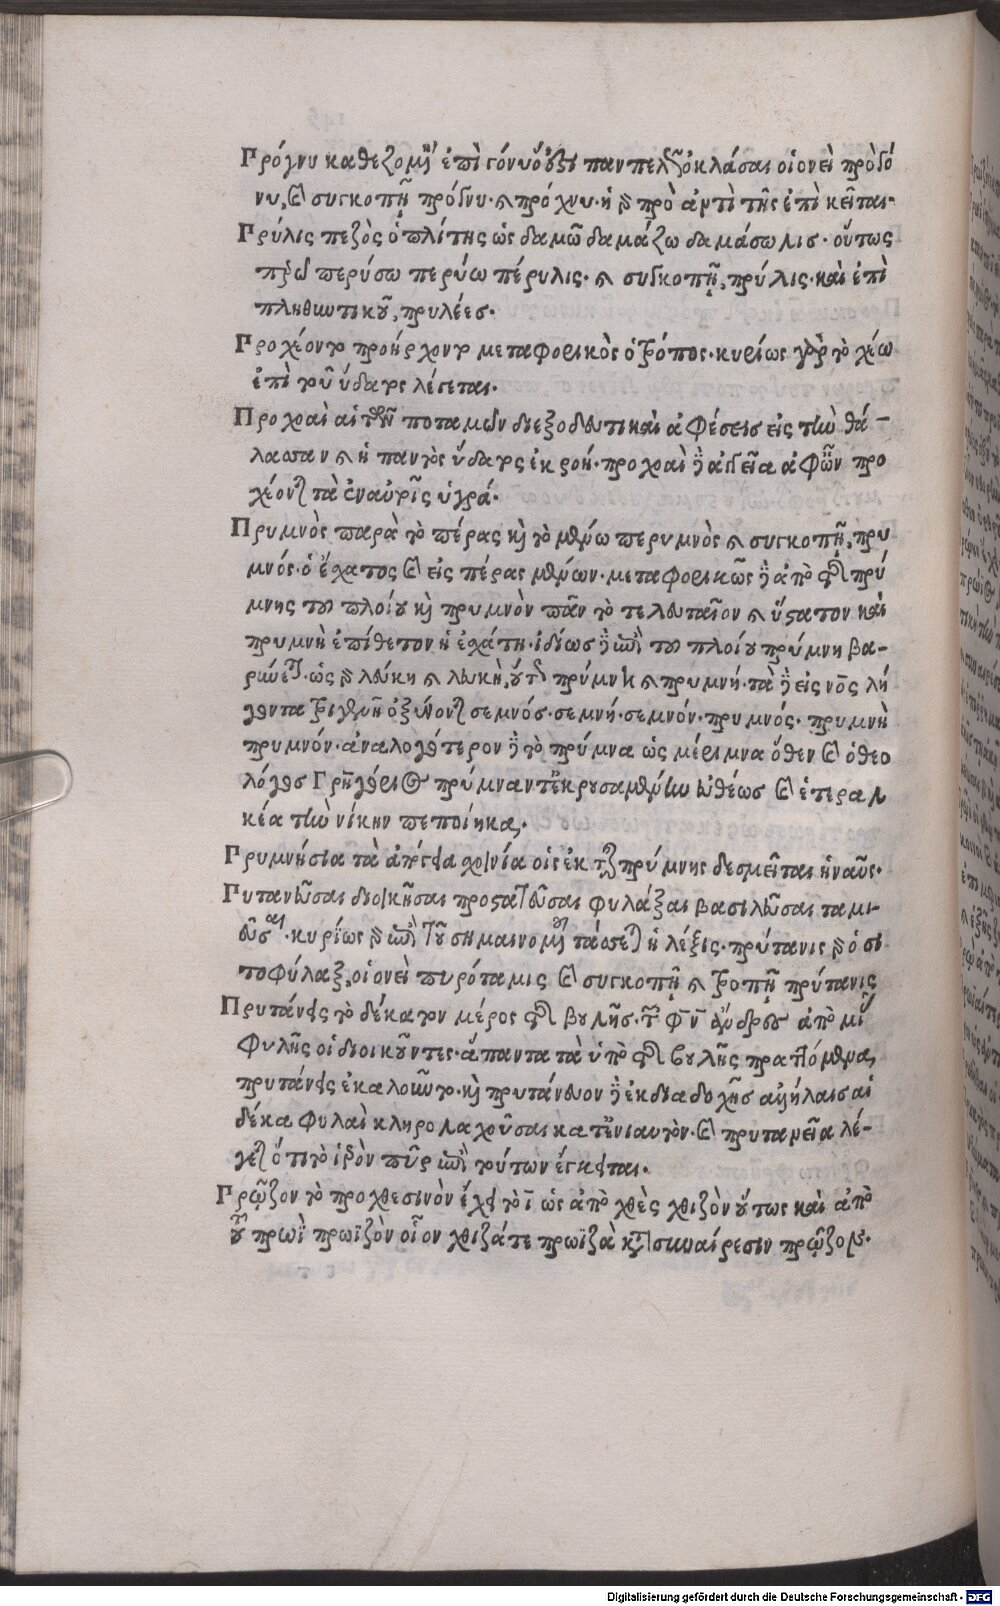 Πρόγνυ καθεζομένη ἐπὶ γόνυ οὕτως παντελῶς ὀκλάσαι οἱονεὶ πρὸ γό
νυ, καὶ συγκοπῇ πρόγνυ. καὶ πρόχνυ. ἡ δὲ πρὸ ἀντὶ τῆς ἐπὶ κεῖται.
Πρύλις πεζὸς ὁπλίτης ὡς δαμῶ δαμάζω δαμάσω λις. οὕτως
περύσω περύω πέρυλις. καὶ συγκοπῇ, πρύλις. καὶ ἐπὶ
πληθυντικοῦ, πρυλέες.
Προχέοντο προήρχοντο μεταφορικὸς ὁ τρόπος. κυρίως γὰρ τὸ χέω
ἐπὶ τοῦ ὕδατος λέγεται.
Προχοαὶ αἱ τῶν ποταμῶν διεξοδευτικαὶ ἀφέσεις εἰς τὴν θά-
λασσαν καὶ ἡ παντὸς ὕδατος ἐκροή. προχοαὶ δὲ ἀγγεῖα ἀφ' ὧν προ
χέουσι τὰ ἐν αὐτοῖς ὑγρά.
Πρυμνὸς παρὰ τὸ πέρας καὶ τὸ μένω περυμνὸς καὶ συγκοπῇ, πρυ
μνός. ὁ ἔσχατος καὶ εἰς πέρας μένων. μεταφορικῶς δὲ ἀπὸ τῆς πρύ
μνης τοῦ πλοίου καὶ πρυμνὸν πᾶν τὸ τελευταῖον καὶ ὕστατον καὶ
πρυμνὴ ἐπίθετον ἡ ἐσχάτη. ἰδίως δὲ ἐπὶ τοῦ πλοίου πρύμνη βα-
ρύνεται. ὡς δὲ λεύκη καὶ λευκὴ, οὕτω πρύμνη καὶ πρυμνή. τὰ δὲ εἰς νος λή
γοντα τριγενῆ ὀξύνονται σεμνός. σεμνή. σεμνόν. πρυμνός. πρυμνὴ
πρυμνόν. ἀναλογώτερον δὲ τὸ πρύμνα ὡς μέριμνα ὅθεν καὶ ὁ θεο
λόγος Γρηγόριος πρύμναν τε κρουσαμένην εὐθέως καὶ ἑτεραλ
κέα τὴν νίκην πεποίηκα.
Πρυμνήσια τὰ ἀπόγεια σχοινία οἷς ἐκ τῆς πρύμνης δεσμεῖται ἡ ναῦς.
Πυτανεῦσαι διοικῆσαι προστατεῦσαι φυλάξαι βασιλεῦσαι ταμι-
εῦσαι. κυρίως δὲ ἐπὶ τοῦ σημαινομένου τάσσεται ἡ λέξις. πρύτανις δὲ ὁ σι
τοφύλαξ, οἱονεὶ πυρόταμις καὶ συγκοπῇ καὶ τροπῇ πρύτανις
Πρυτάνεις τὸ δέκατον μέρος τῆς βουλῆς. τῶν φ ν ἄνδρες ἀπὸ μιᾶς
φυλῆς οἱ διοικοῦντες. ἅπαντα τὰ ὑπὸ τῆς βουλῆς πραττόμενα,
πρυτάνεις ἐκαλοῦντο. καὶ πρυτάνευον δὲ ἐκ διαδοχῆς ἀλλήλαις αἱ
δέκα φυλαὶ κλήρῳ λαχοῦσαι κατ' ἐνιαυτόν. καὶ πρυτανεῖα λέ-
γεται ὅτι τὸ ἱερὸν πῦρ ἐπὶ τούτων ἔγκειται.
Πρῷζον τὸ προχθεσινὸν ἔχει τὸ ι ὡς ἀπὸ χθὲς χθιζὸν οὕτως καὶ ἀπὸ
τοῦ πρωῒ πρωϊζὸν οἷον χθιζά τε πρωϊζὰ κατὰ συναίρεσιν πρῷζον.
Digitalisierung gefördert durch die Deutsche Forschungsgemeinschaft - DFG